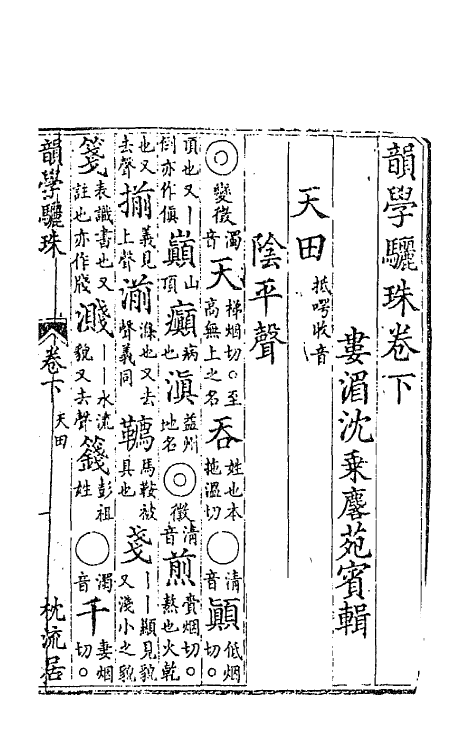 韻學驪珠卷下
婁湄沈乗麐苑賓輯
天田 抵㗁收音
陰平聲
◎變徵濁音天梯烟切○至高無上之名吞姓也本拖溫切○清音顚低烟切○
頂也又丨倒亦作傎巓山頂癲病也滇益州地名◎徵清音煎賫烟切○熬也火乾
也又去聲揃義見上聲湔滌也又去聲義同韉馬鞍被具也戔丨丨顯見貌又淺小之貌
箋表識書也又註也亦作牋濺丨丨水流貌又去聲籛彭祖姓○濁音千妻烟切○
韻學驪珠 卷下 天田 枕流居